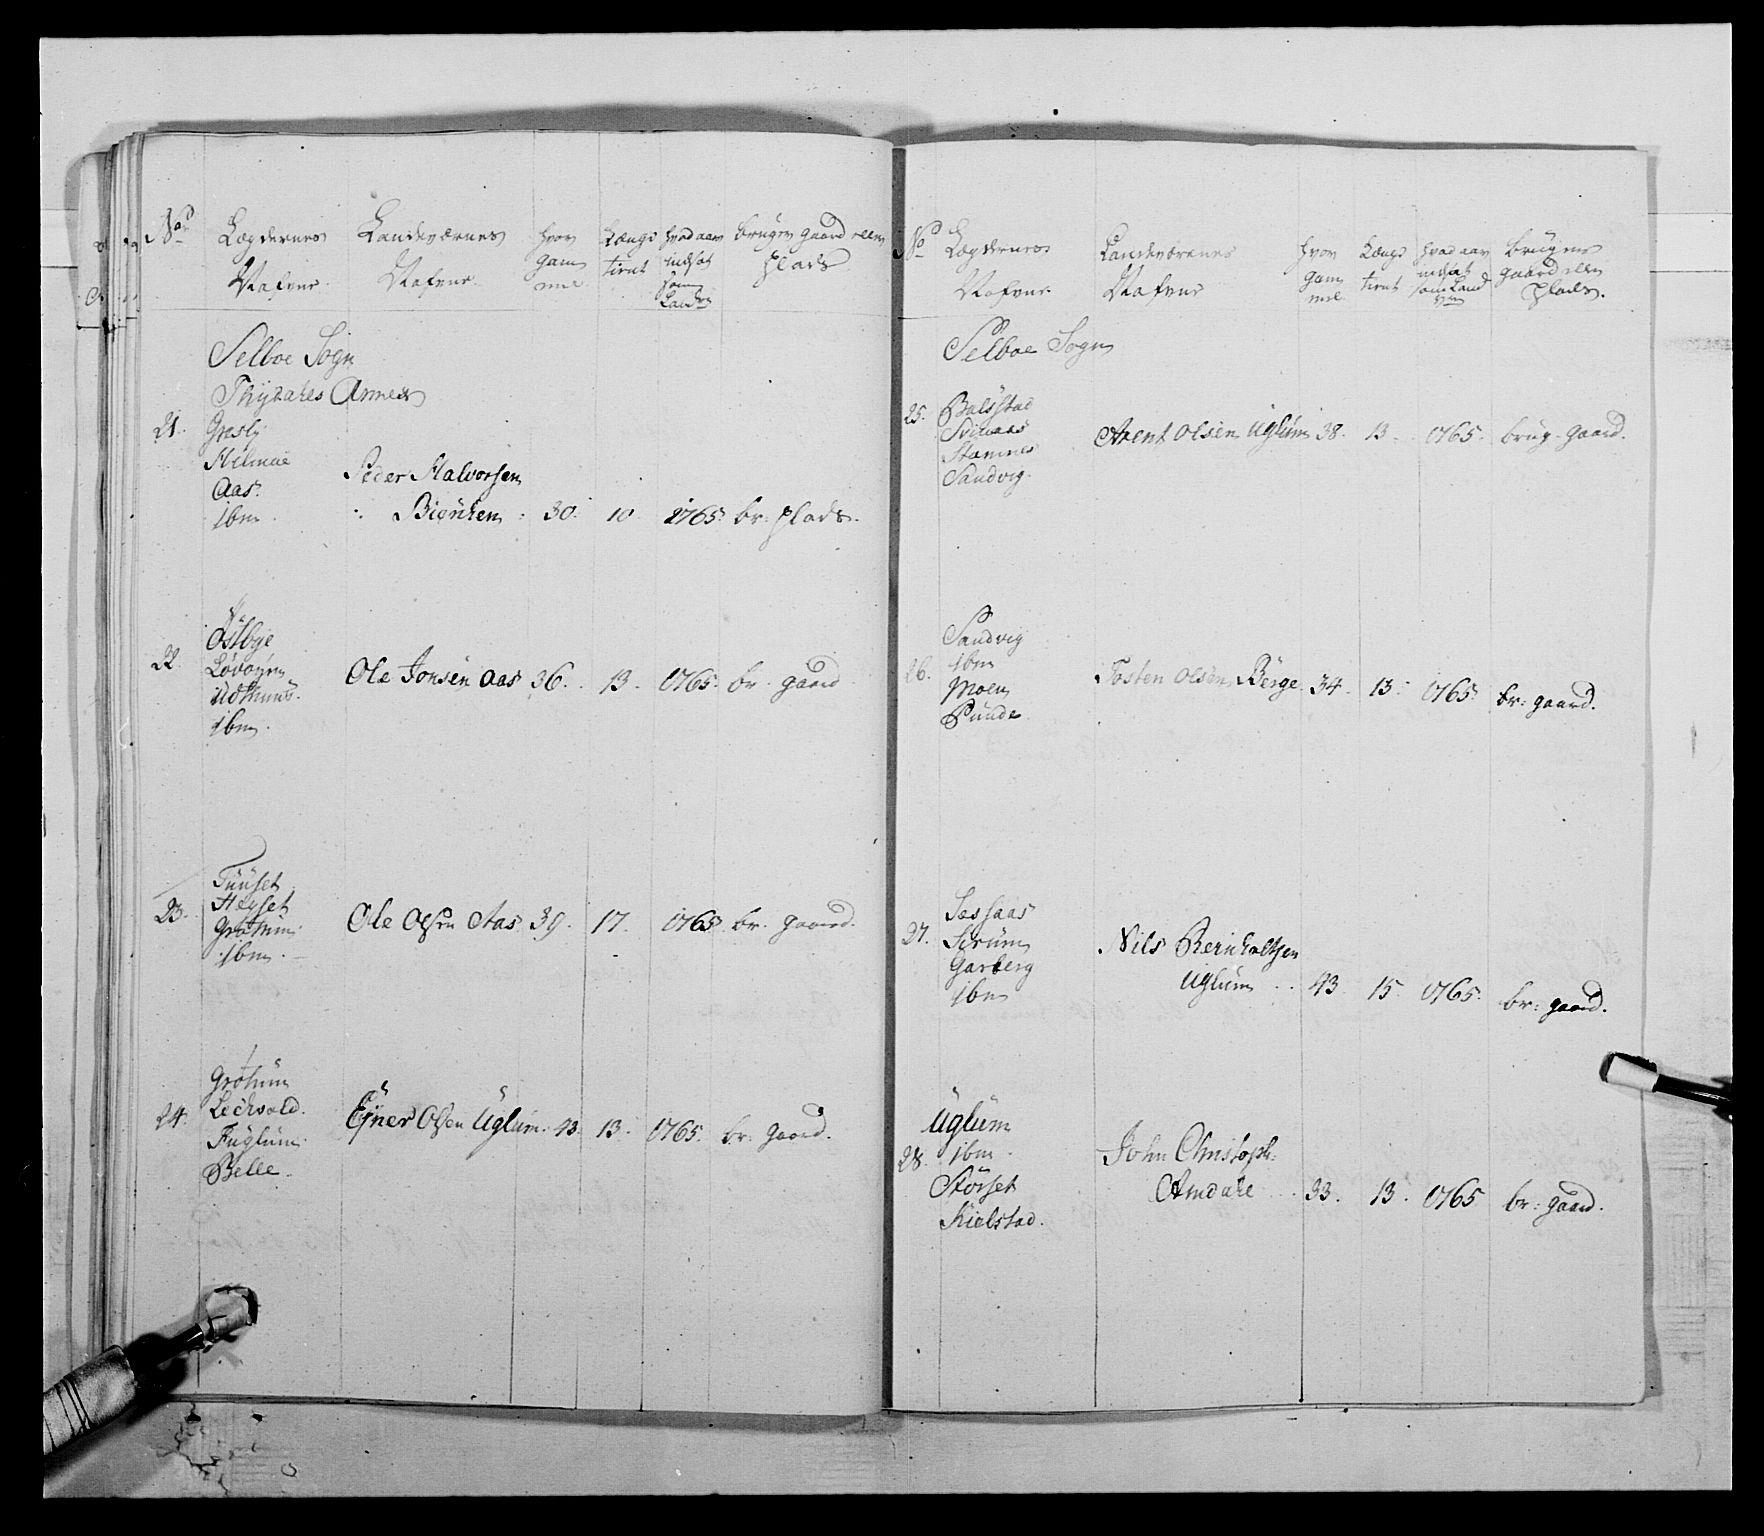 No
Lægdernes
Nafne
Landeværnes
Nafne
hvor
gam
mel
Længe
tient
hvad aar
indsat
som
Landv
bruger gaard eller
plads
Selboe Sogn
Thydahls Annex
21.
Græsly
Hilmoe
Aas.
ibm
Peder Halvorsen
Biönken 30. 10 1765. br: plads.
22.
Östbye
Løvøyen
Udthuus.
ibm.
Ole Jonsen Aas 36. 13. 1765. br. gaard
23.
Tuüset
Heÿset
Gröthüm
ibm.
Ole Olsen Aas 39. 17. 1765 br. gaard.
24.
Gröthüm
Leckvold.
Fuglüm.
Belle.
Ejner Olsen Uglüm. 43. 13. 1765. br: gaard.
No
Lægdernes
Nafne.
Landeværnes
Nafne
hvor
gam
mel
Længe
tient
hvad aar
indsat
som Land
vn
bruger
gaard eller
plads.
Selboe Sogn
25.
Balstad
Sviaas
Stamnes
Sandvig.
Arent Olsen Uglüm 38. 13. 1765. brug. gaard.
26.
Sandvig
ibm
Moen
Rüüde
Tosten Olsen Berge 34. 13. 1765. br: gaard.
27.
Sesaas
Sirüm
Garberg
ibm
Nils Bernholtsen
Uglüm 43. 15. 1765. br: gaard.
28.
Uglüm
ibm.
Störset
Kielstad.
John Christoph:
Amdahl 33. 13. 1765 br: gaard.